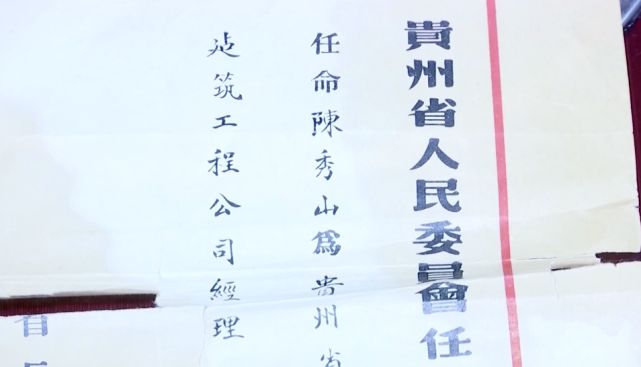 貴州省人民委員會任
任命陳秀山為貴州省
建筑工程公司經理
省